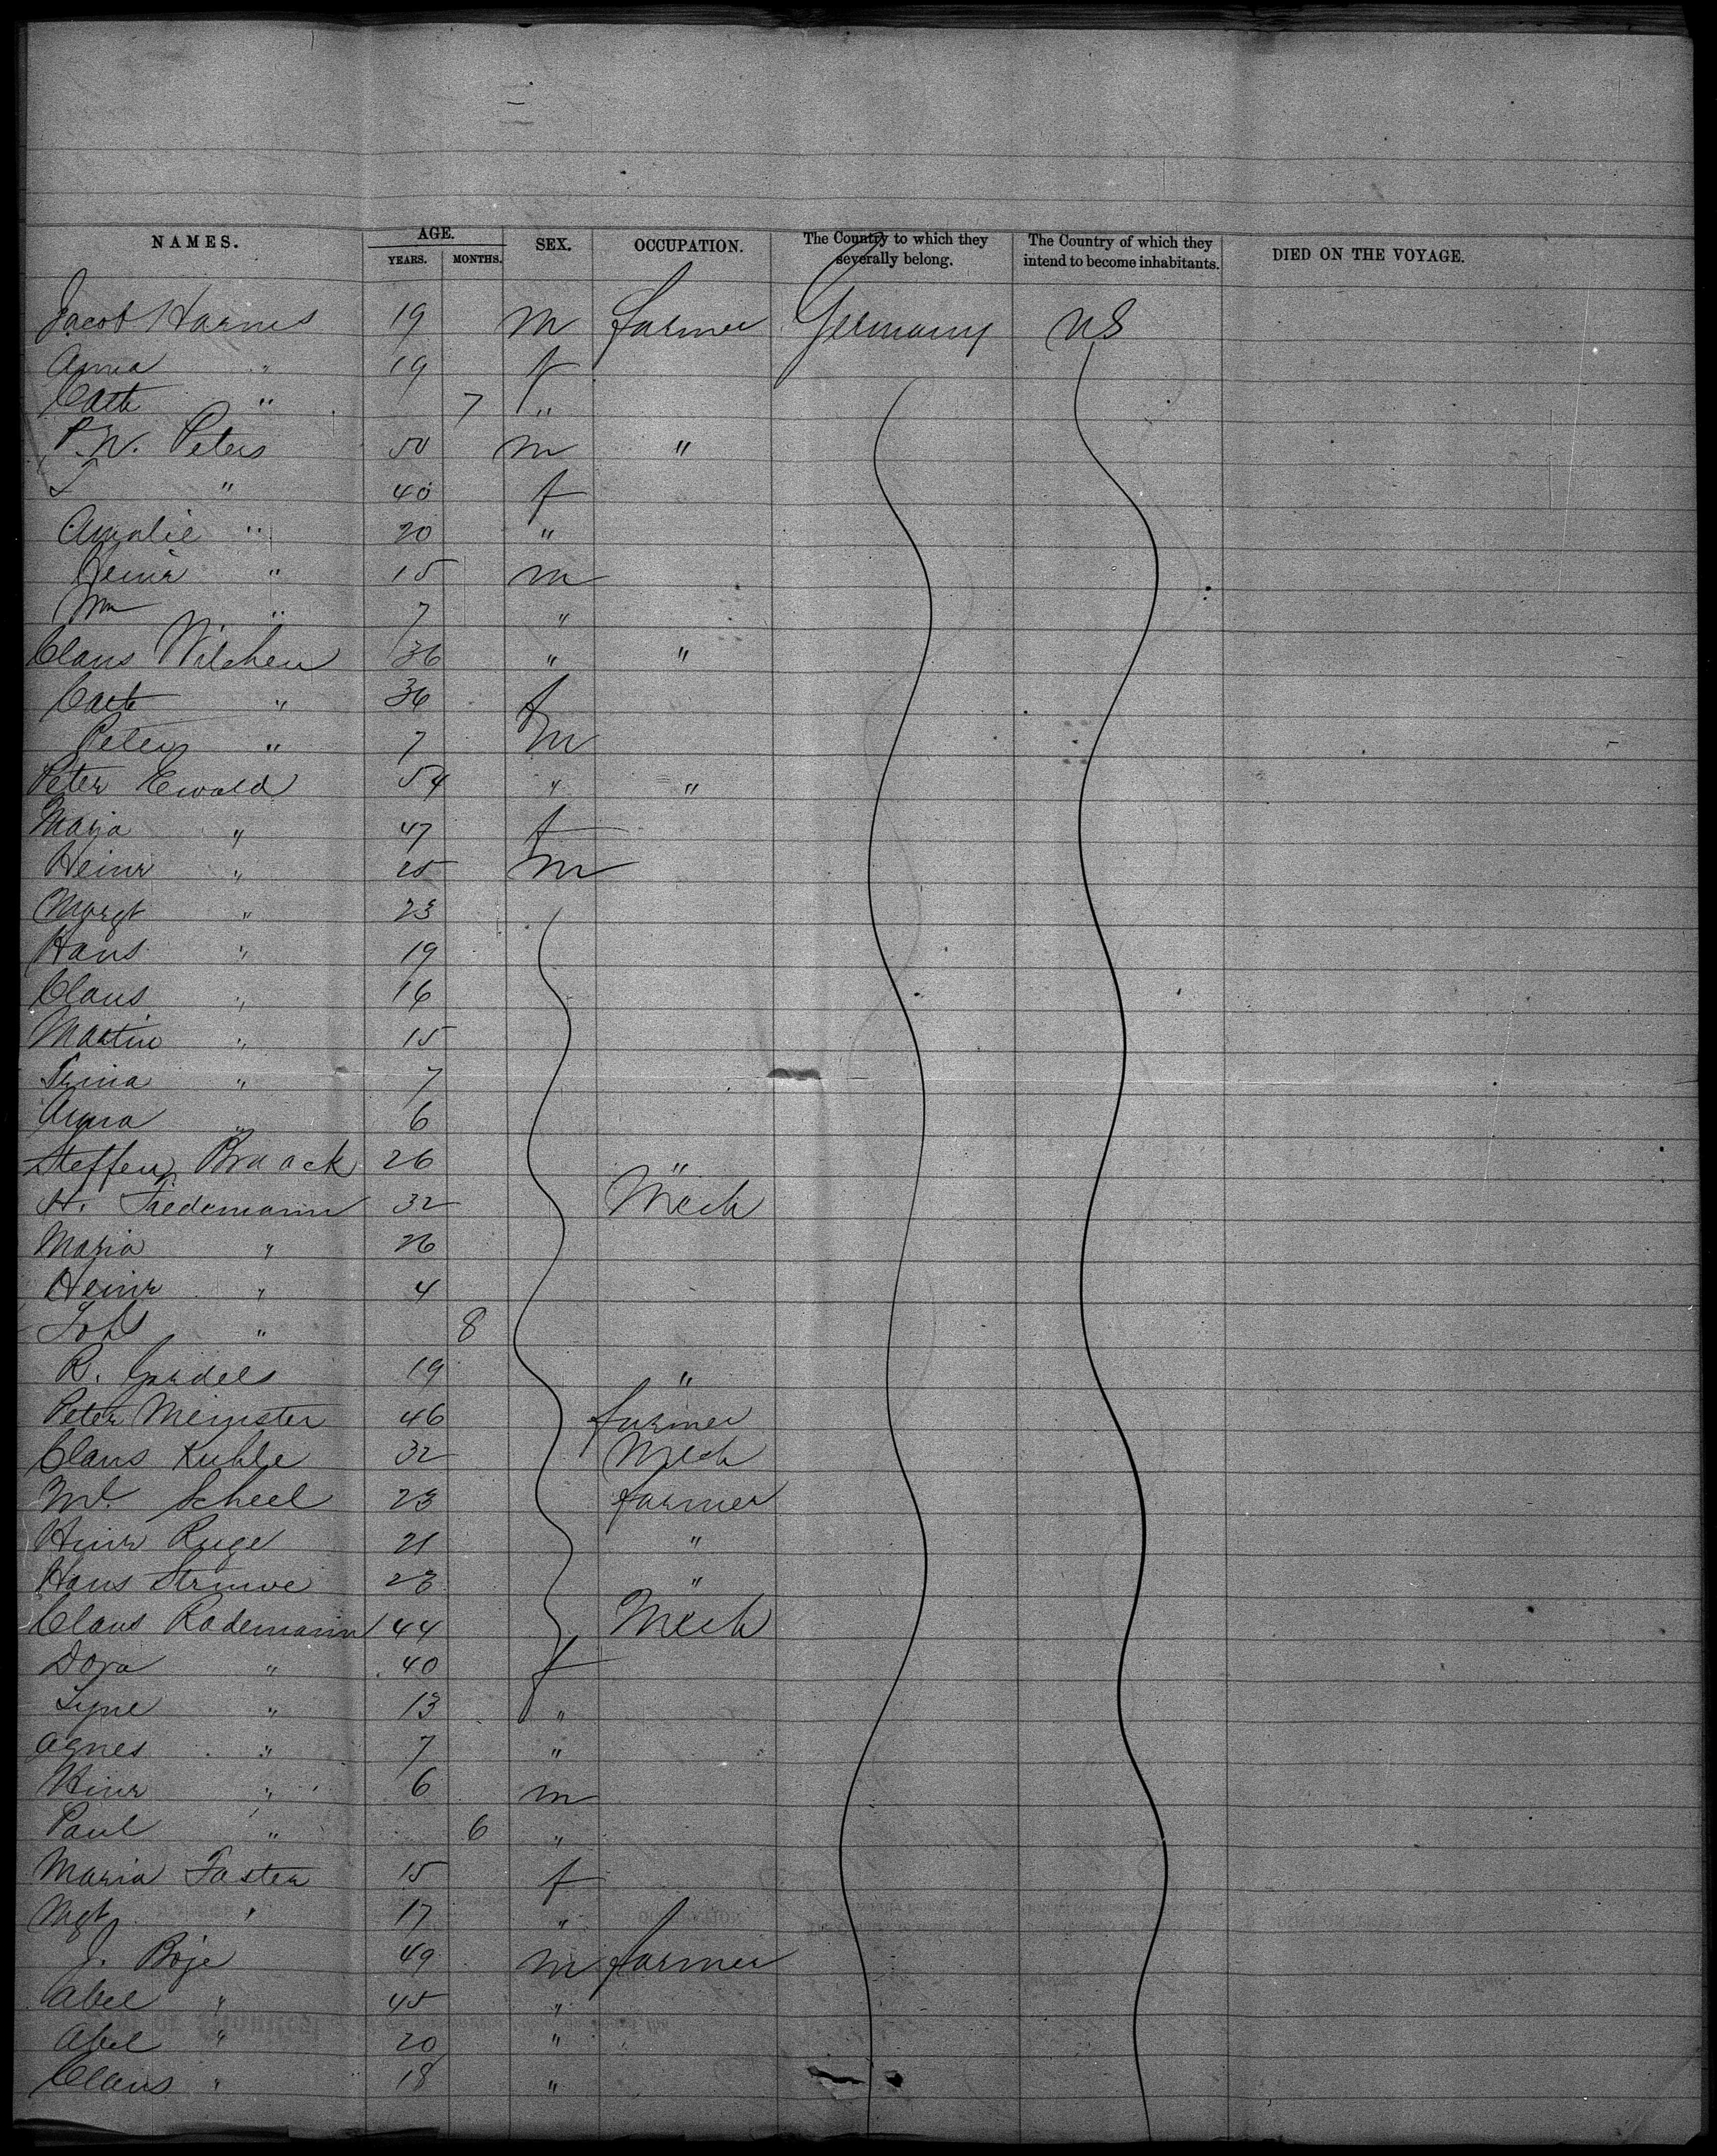 NAMES. AGE. SEX. OCCUPATION. The Country to which they severally belong. The Country of which they intend to become inhabitants. DIED ON THE VOYAGE.
YEARS. MONTHS.
Jacob Harms 19 m farmer Germany US
Anna " 19 f
Cath " 7 "
P. W. Peters 50 m "
" 40 f
Amalie " 20 "
Heinr " 15 m
Wm " 7 "
Claus Wilchen 36 " "
Cath " 36 f
Peter " 7 m
Peter Ewald 54 " "
Maria " 47 f
Heinr " 25 m
Margt " 23
Hans " 19
Claus " 16
Martin " 15
" 7
Anna " 6
Steffen Braack 26 "
H. Tiedemann 32 Mech
Maria " 26
Heinr " 4
Joh " 8
R. Gardels 19 "
Peter Meinster 46 farmer
Claus Kuhle 32 Mech
Scheel 23 farmer
Hinr Ruge 21 "
Hans Struwe 23 "
Claus Rademann 44 Mech
Dora " 40 f
" 13 "
Agnes " 7 "
Hinr " 6 m
Paul " 6 "
Maria Faster 15 f
Mgt " 17 "
J. Boje 49 m farmer
Abel " 45 "
Abel " 20 "
Claus " 18 "